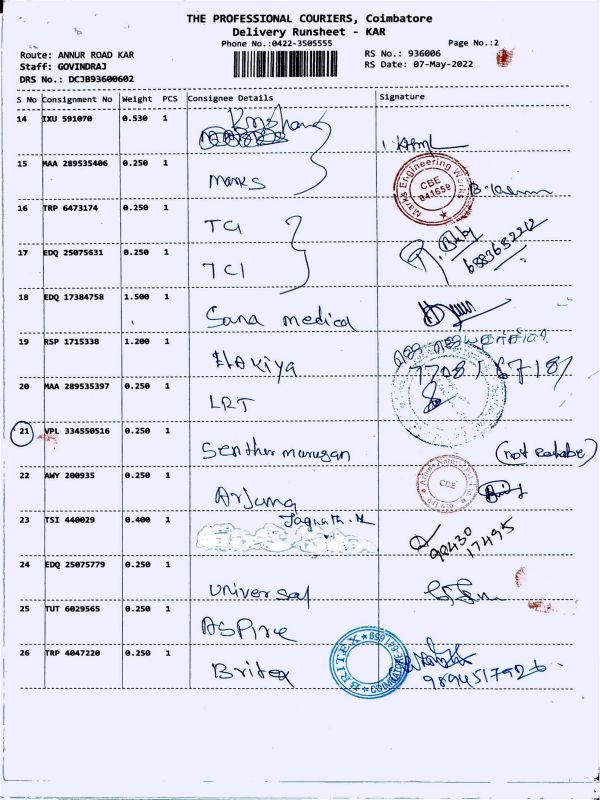 THE PROFESSIONAL COURIERS, Coimbatore
Delivery Runsheet - KAR
Phone No.:0422-3505555
Page No.:2
Route: ANNUR ROAD KAR
RS No.: 936006
Staff: GOVINDRAJ
RS Date: 07-May-2022
DRS No.: DCJB93600602
S No Consignment No Weight PCS Consignee Details Signature
14 IXU 591070 0.530 1
15 MAA 289535406 0.250 1 Marks
Marks Engineering Works CBE 641659
16 TRP 6473174 0.250 1 TCI
17 EDQ 25075631 0.250 1 TCI
18 EDQ 17384758 1.500 1 Sana medical
19 RSP 1715338 1.200 1
20 MAA 289535397 0.250 1 LRT
21 VPL 334550516 0.250 1 Senthur murugan
22 AWY 200935 0.250 1 Arjuna
CBE
23 TSI 440029 0.400 1 Jagnath.M
90430
17495
24 EDQ 25075779 0.250 1 Universal
25 TUT 6029565 0.250 1 ASPire
26 TRP 4047220 0.250 1 Britex
BRITEX COIMBATORE
9894517926